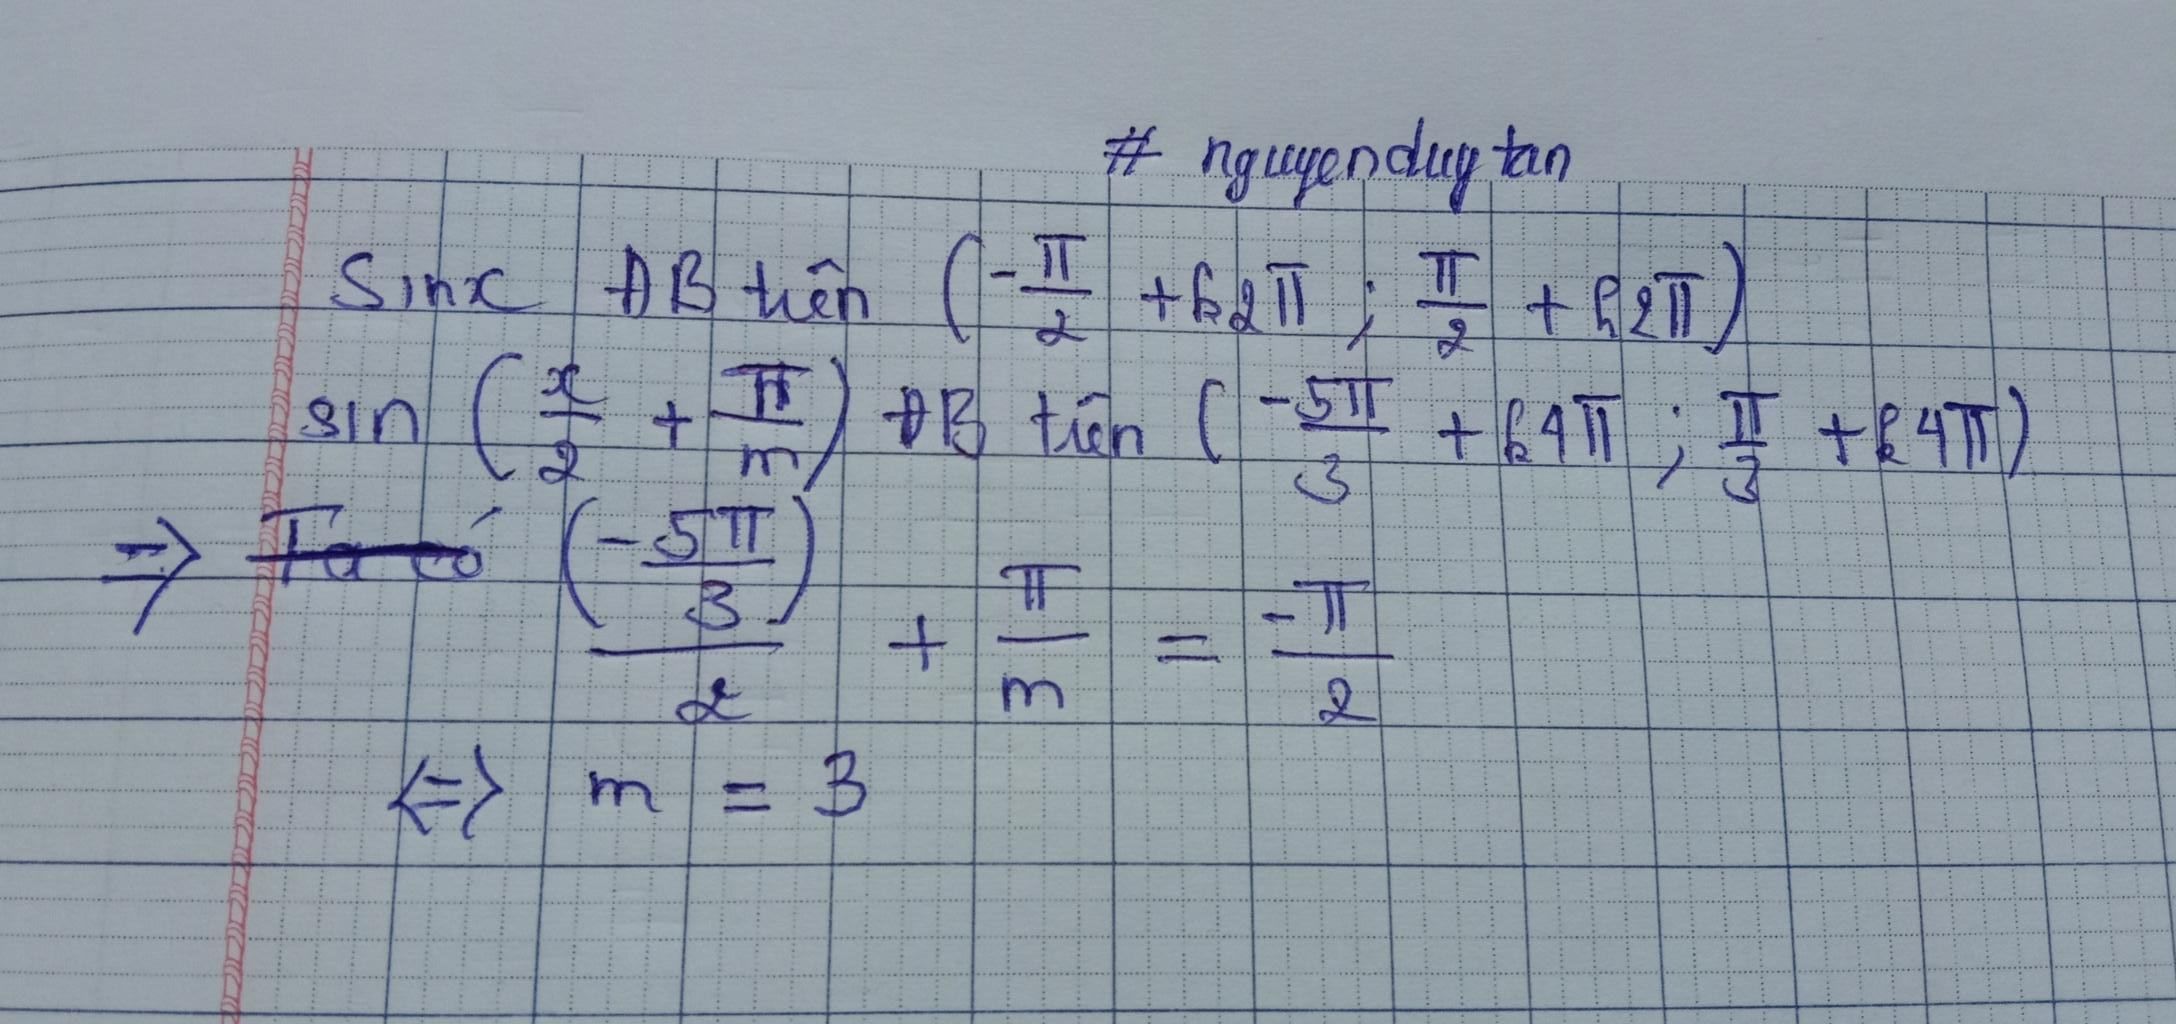 # nguyenduytan
Sinx ĐB trên (-π/2 + k2π ; π/2 + k2π)
sin (x/2 + π/m) ĐB trên (-5π/3 + k4π ; π/3 + k4π)
=> Ta có (-5π/3)/2 + π/m = -π/2
<=> m = 3